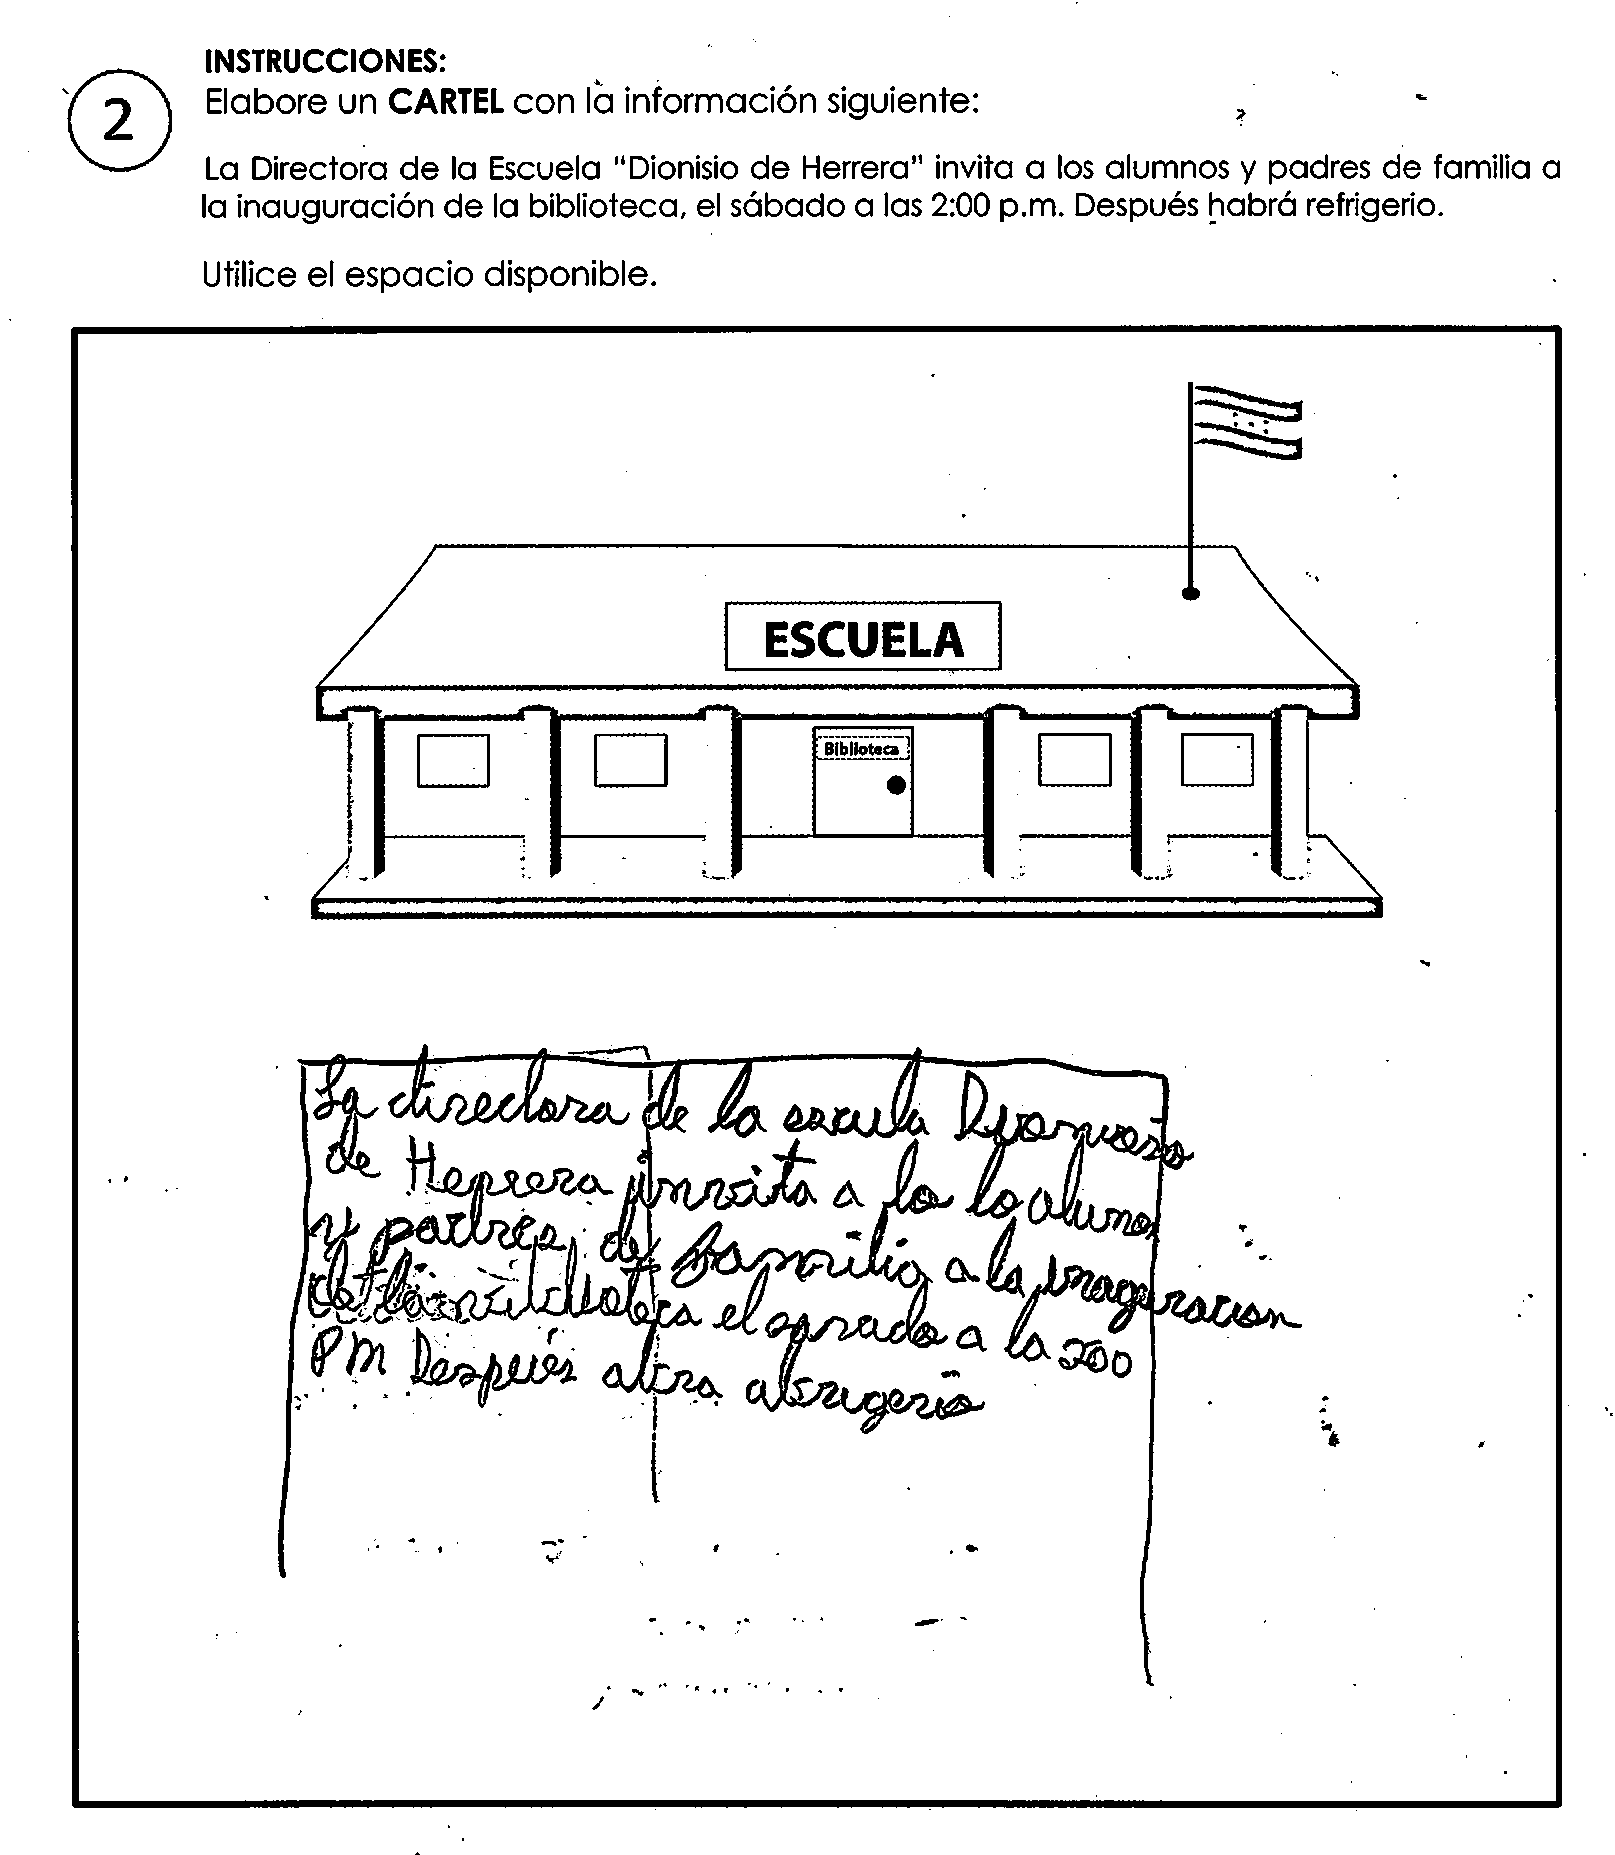 INSTRUCCIONES:
2
Elabore un CARTEL con la información siguiente:
La Directora de la Escuela "Dionisio de Herrera" invita a los alumnos y padres de familia a
la inauguración de la biblioteca, el sábado a las 2:00 p.m. Después habrá refrigerio.
Utilice el espacio disponible.
ESCUELA
Biblioteca
La directora de la escula
de Herrera invita a lo lo alumno
y padres de familia a la inaguracion
el a la 200
PM Después abra abrigerio